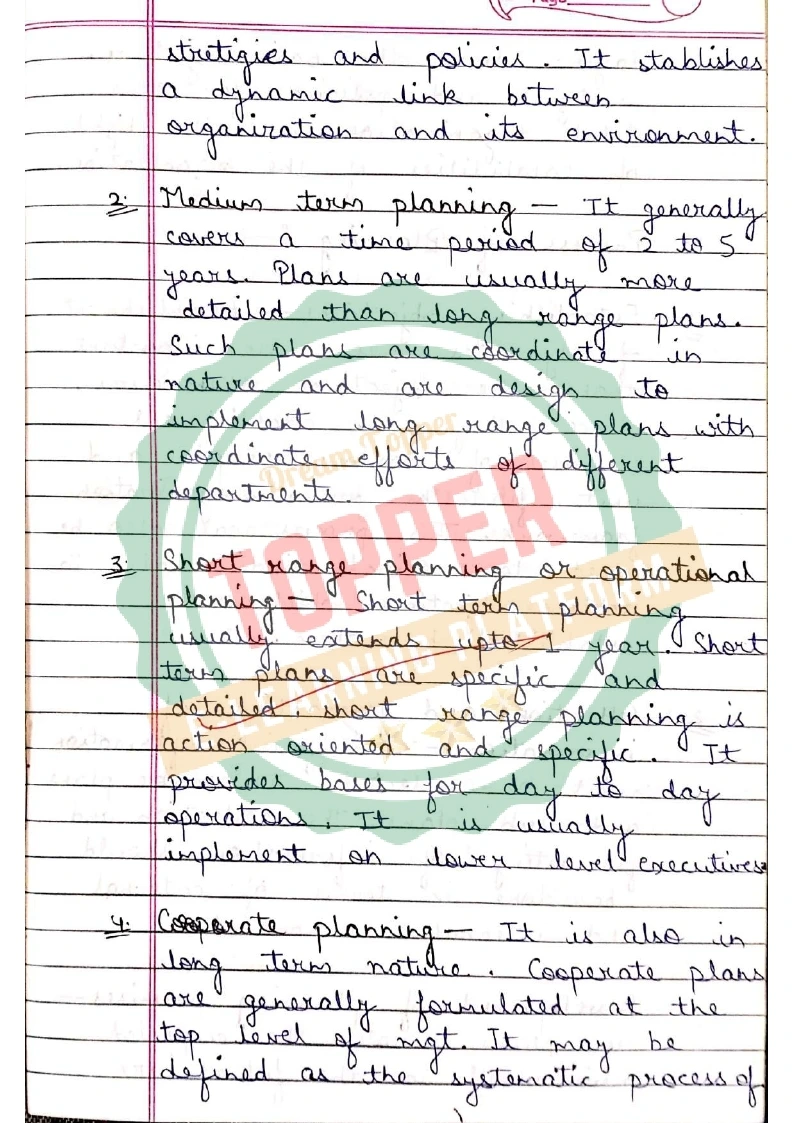 stretigies and policies. It stablishes
a dynamic link between
organization and its environment.
2. Medium term planning – It generally
covers a time period of 2 to 5
years. Plans are usually more
detailed than long range plans.
Such plans are coordinate in
nature and are design to
implement long range plans with
coordinate efforts of different
departments.
3. Short range planning or operational
planning – Short term planning
usually extends upto 1 year. Short
term plans are specific and
detailed. short range planning is
action oriented and specific. It
provides bases for day to day
operations. It is usually
implement on lower level executives
4. Cooperate planning – It is also in
long term nature. Cooperate plans
are generally formulated at the
top level of mgt. It may be
defined as the systematic process of
Dream Topper
TOPPER
E-LEARNING PLATFORM